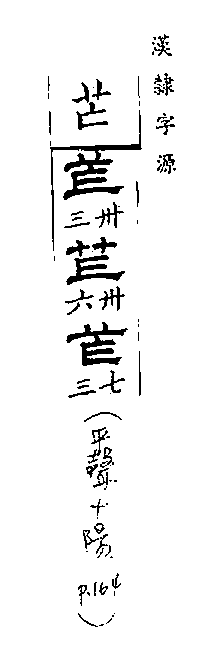 漢隸字源
芒
芒
卅三
芒
卅六
芒
七三
(平聲十陽 P.164)